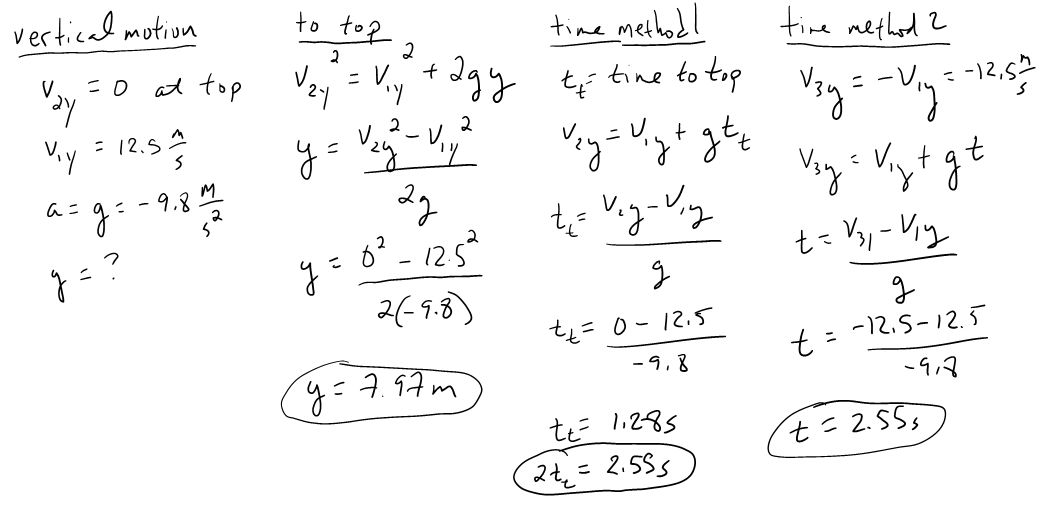 vertical motion
v₂y = 0 at top
v₁y = 12.5 m/s
a = g = -9.8 m/s²
y = ?
to top
v₂y² = v₁y² + 2gy
y = (v₂y² - v₁y²) / 2g
y = (0² - 12.5²) / 2(-9.8)
y = 7.97 m
time method 1
tₜ = time to top
v₂y = v₁y + gtₜ
tₜ = (v₂y - v₁y) / g
tₜ = (0 - 12.5) / -9.8
tₜ = 1.28s
2tₜ = 2.55s
time method 2
v₃y = -v₁y = -12.5 m/s
v₃y = v₁y + gt
t = (v₃y - v₁y) / g
t = (-12.5 - 12.5) / -9.8
t = 2.55s